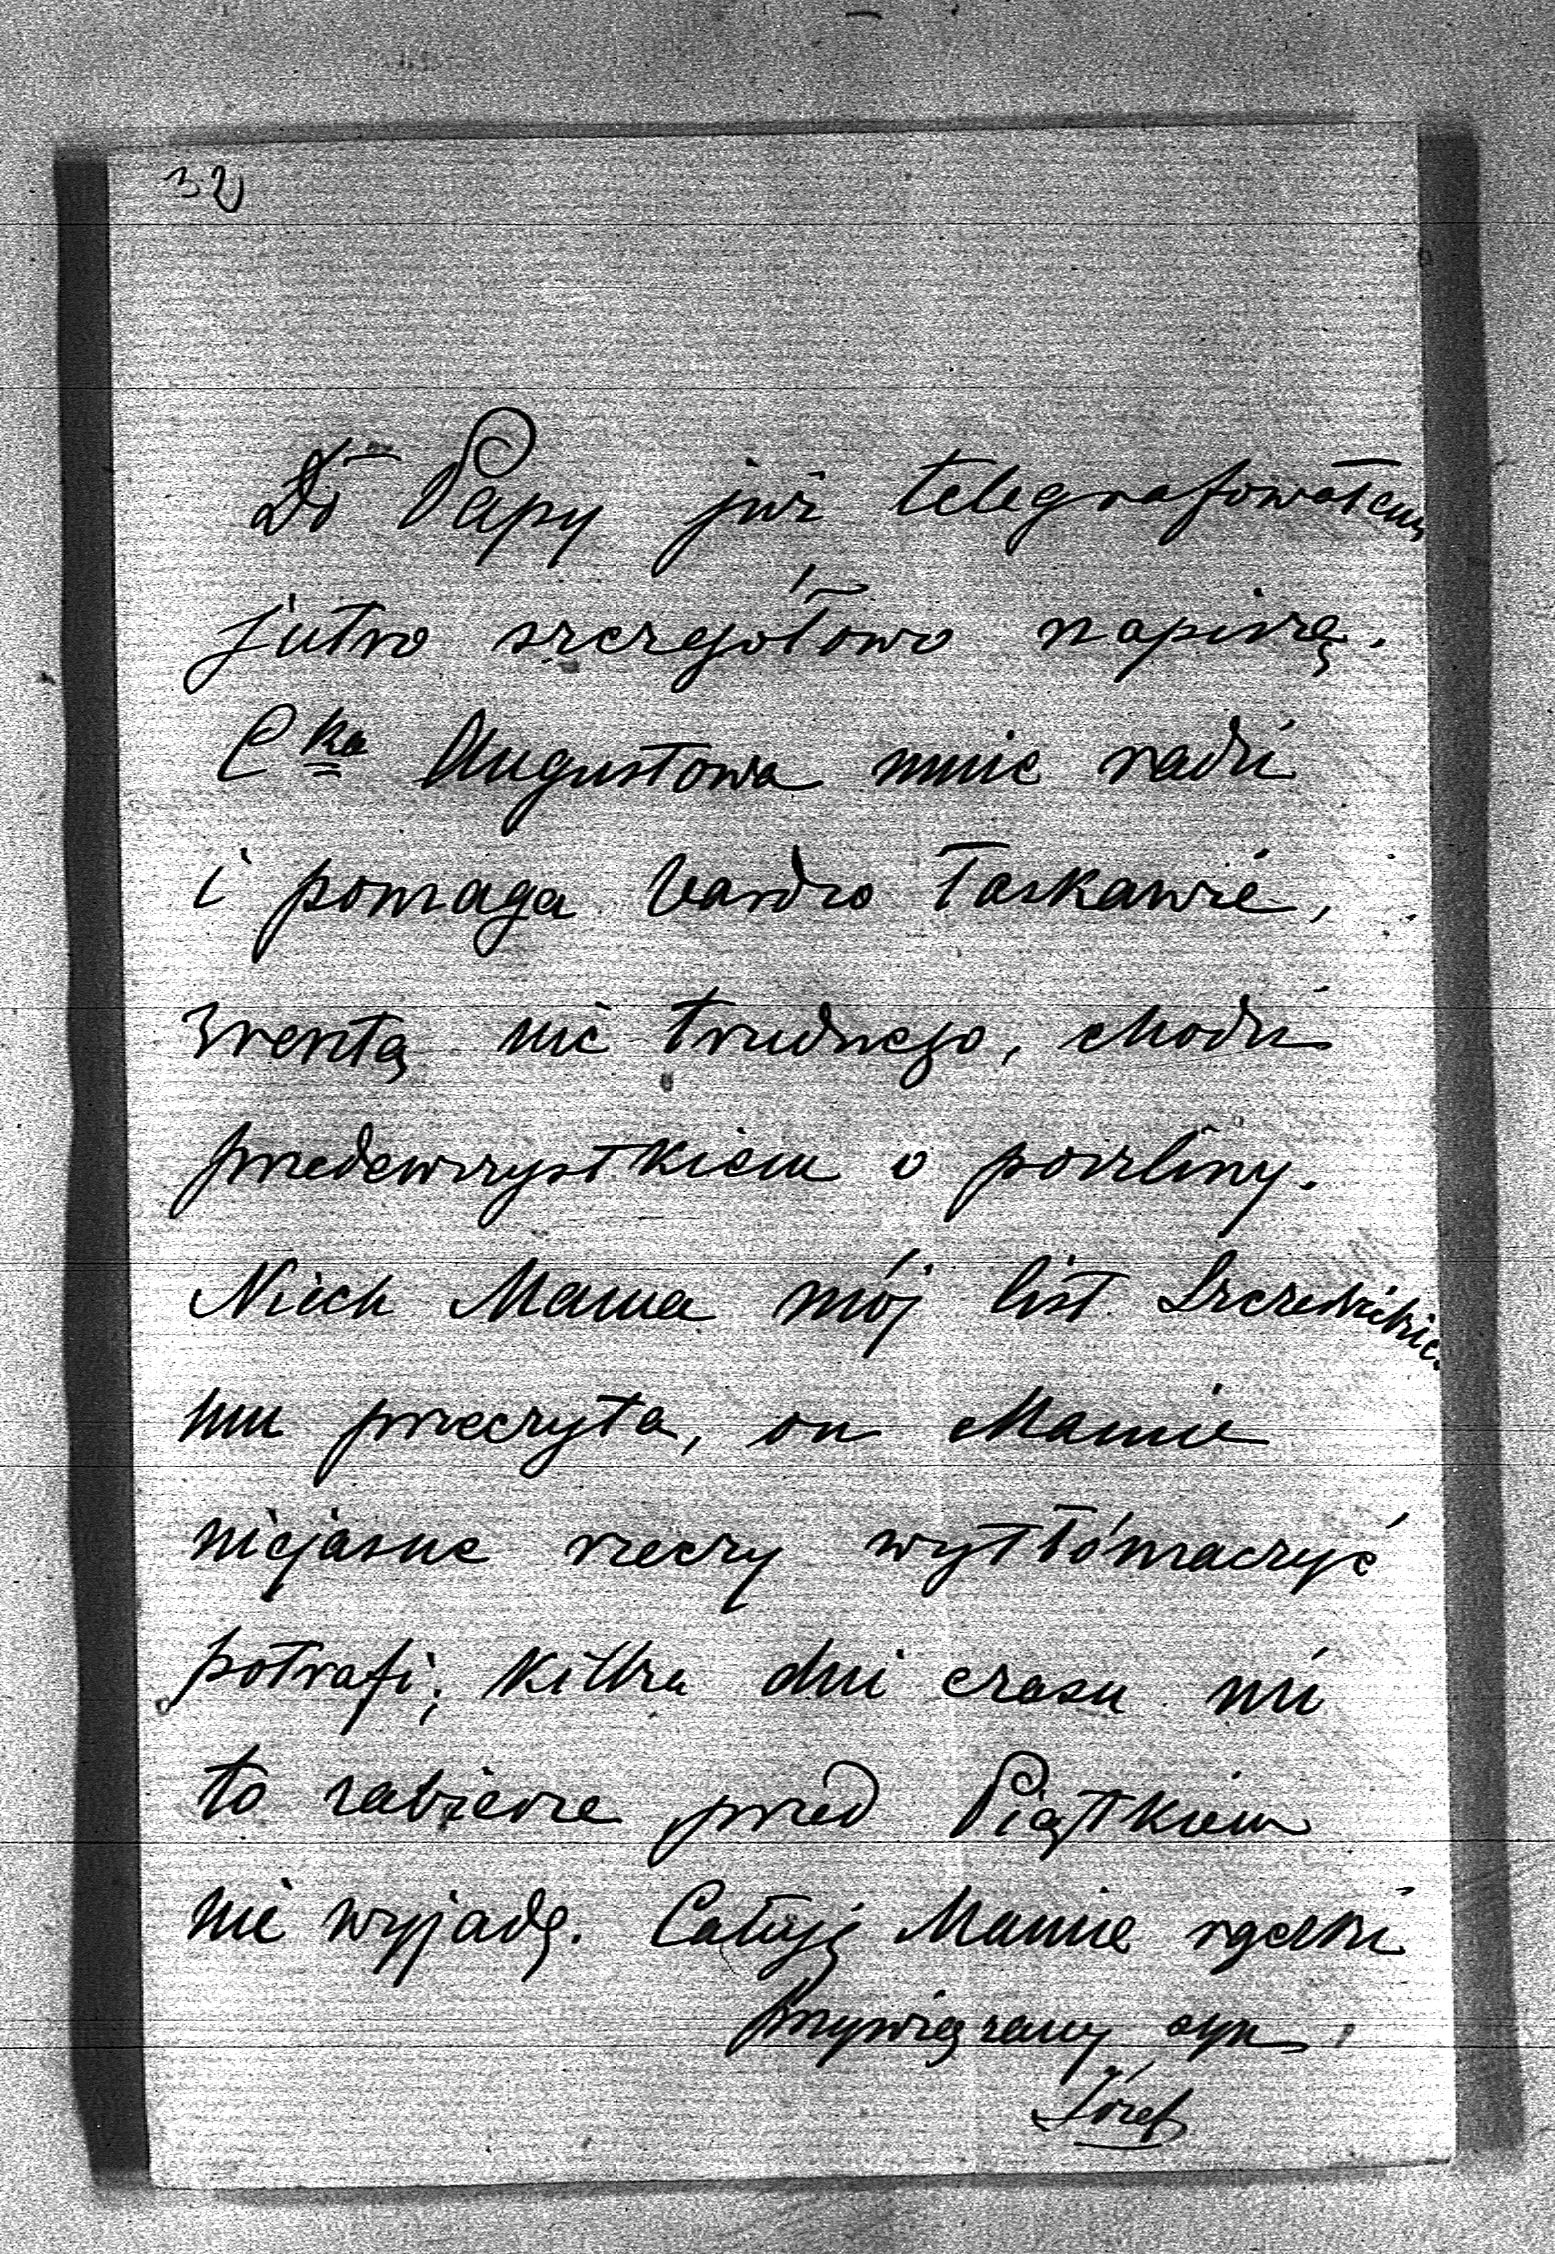 32
Do Papy już telegrafowałem
jutro szczegółowo napiszę.
Cka Augustowa mnie radzi
i pomaga bardzo łaskawie,
zresztą nic trudnego, chodzi
przedewszystkiem o poszliny.
Niech Mama mój list
mu przeczyta, on Mamie
niejasne rzeczy wytłómaczyć
potrafi; kilka dni czasu mi
to zabierze przed Piątkiem
nie wyjadę. Całuję Mamie rączki
przywiązany syn
Józef